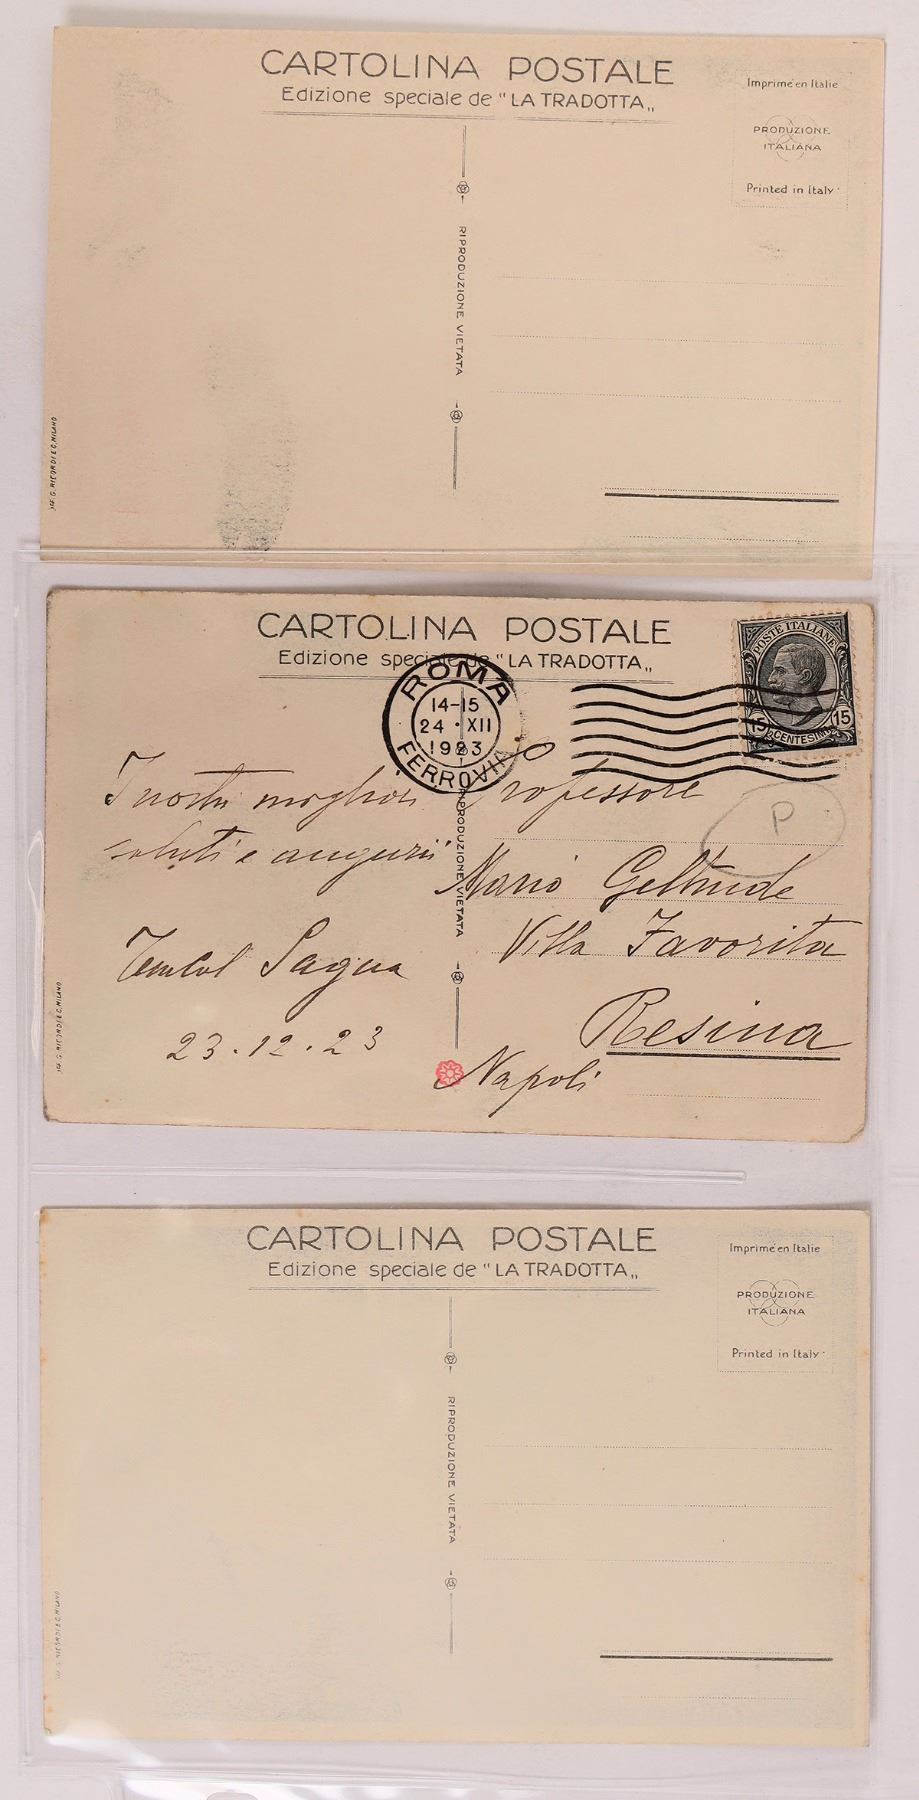 CARTOLINA POSTALE
Edizione speciale de "LA TRADOTTA„
Imprimé en Italie
PRODUZIONE
ITALIANA
Printed in Italy
RIPRODUZIONE VIETATA
IGF. G. RICORDI E C. MILANO
CARTOLINA POSTALE
Edizione speciale de "LA TRADOTTA„
ROMA
14-15
24 · XII
1923
FERROVIA
POSTE ITALIANE
15 CENTESIMI 15
P
I nostri migliori
saluti e auguri
23.12.23
RIPRODUZIONE VIETATA
Professore
Mario Geltrude
Villa Favorita
Resina
Napoli
IGF. G. RICORDI E C. MILANO
CARTOLINA POSTALE
Edizione speciale de "LA TRADOTTA„
Imprimé en Italie
PRODUZIONE
ITALIANA
Printed in Italy
RIPRODUZIONE VIETATA
IGF. G. RICORDI E C. MILANO